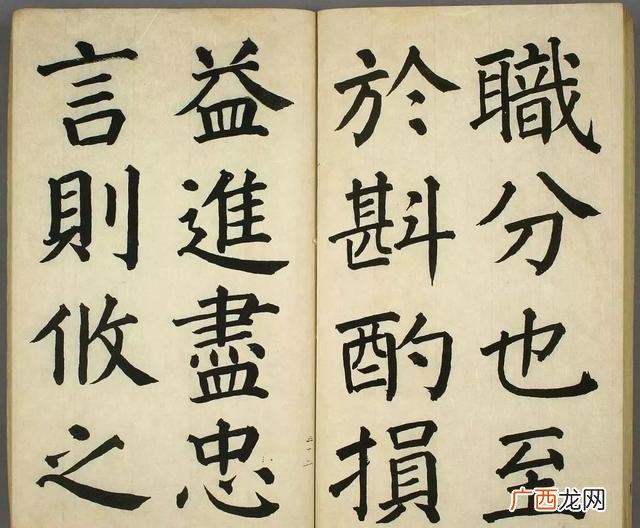 職分也至
於斟酌損
益進盡忠
言則攸之
广西龙网